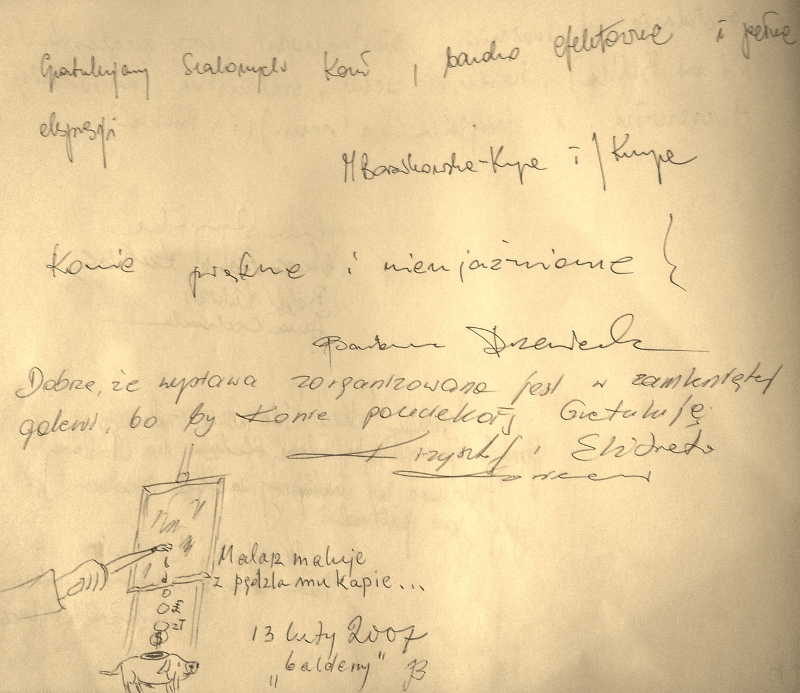 Gratulujemy Szalonych Koni, bardzo efektowne i pełne
ekspresji
i Krupe
Konie piękne i nieujaźmione
Barbara
Dobrze, że wystawa zorganizowana jest w zamkniętej
galerii, bo by Konie pouciekały Gratuluję
Krzysztof i Elżbieta
Malarz maluje
z pędzla mu kapie...
zł
zł
$
13 luty 2007
"baldemy" JB